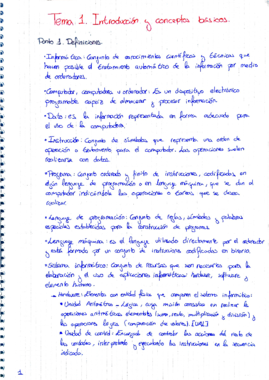 Tema 1. Introducción y conceptos básicos.
Punto 1. Definiciones.
· Informática: Conjunto de conocimientos científicos y técnicas que
hacen posible el tratamiento automático de la información por medio
de ordenadores.
· Computador, computadora u ordenador: Es un dispositivo electrónico
programable capaz de almacenar y procesar información.
· Dato: es la información representada en forma adecuada para
el uso de la computadora.
· Instrucción: Conjunto de símbolos que representa una orden de
operación o tratamiento para el computador. Las operaciones suelen
realizarse con datos.
· Programa: Conjunto ordenado y finito de instrucciones, codificadas, en
algún lenguaje de programación o en lenguaje máquina, que se dan al
computador indicándole las operaciones o tareas que se desea
realizar.
· Lenguaje de programación: Conjunto de reglas, símbolos y palabras
especiales establecidas para la construcción de programas.
· Lenguaje máquina: es el lenguaje utilizado directamente por el ordenador
y está formado por un conjunto de instrucciones codificadas en binario.
· Sistema informático: Conjunto de recursos que son necesarios para la
elaboración y el uso de aplicaciones informáticas: hardware, software y
elemento humano.
Hardware: Elementos con entidad física que componen el sistema informático:
· Unidad Aritmético - Lógica: cuya misión consiste en realizar las
operaciones aritméticas elementales (suma, resta, multiplicación y división) y
las operaciones lógicas (comparación de valores). [UAL]
· Unidad de control: Encargada de controlar las acciones del resto de
las unidades, interpretando y ejecutando las instrucciones en la secuencia
indicada.
1